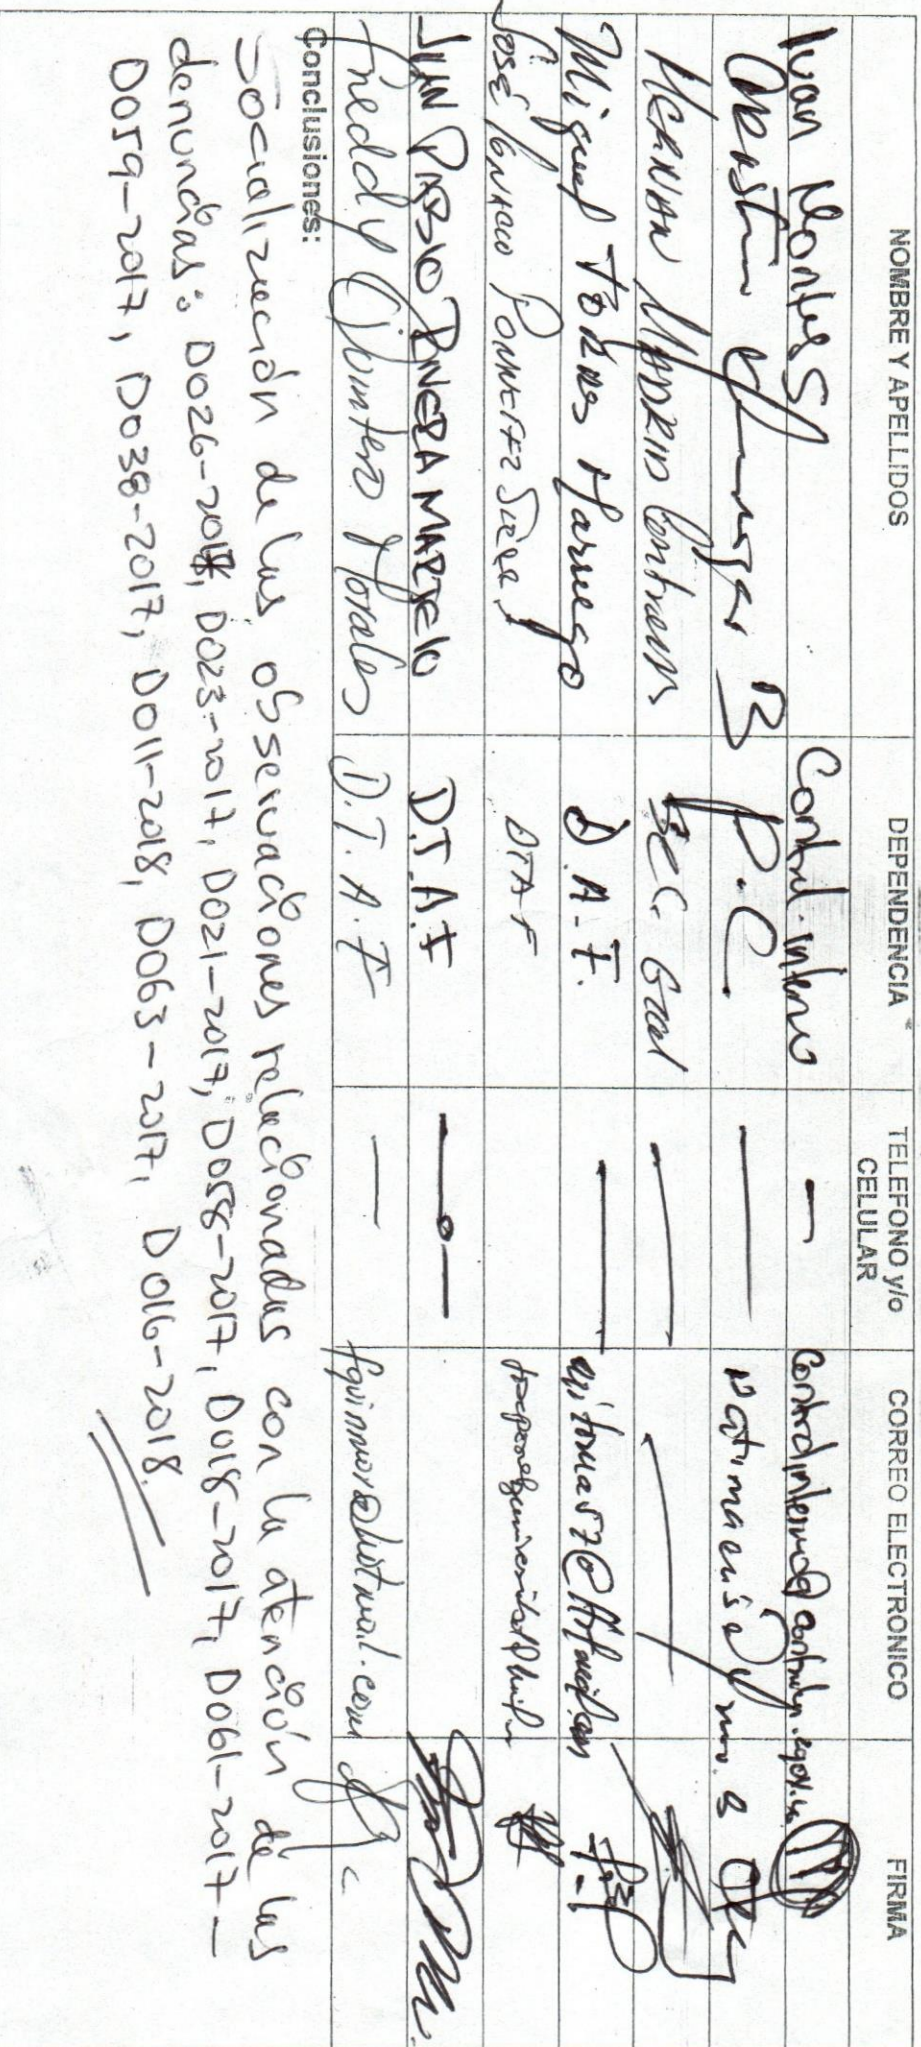 NOMBRE Y APELLIDOS DEPENDENCIA TELEFONO y/o CELULAR CORREO ELECTRONICO FIRMA
Ivan Montes Control interno
B P.C.
HERNAN MADRID Contreras SEC. Gral
Miguel Torres Marrugo D.A.F.
JOSÉ IGNACIO DTAF
JUAN PABLO PINEDA MARTELO D.T.A.F
Freddy Quintero Morales D.T.A.F fquinmor@hotmail.com
Conclusiones:
Socialización de las observaciones relacionadas con la atención de las
denuncias: D026-2017, D023-2017, D021-2017, D058-2017, D018-2017, D061-2017-
D059-2017, D038-2017, D011-2018, D063-2017, D016-2018.